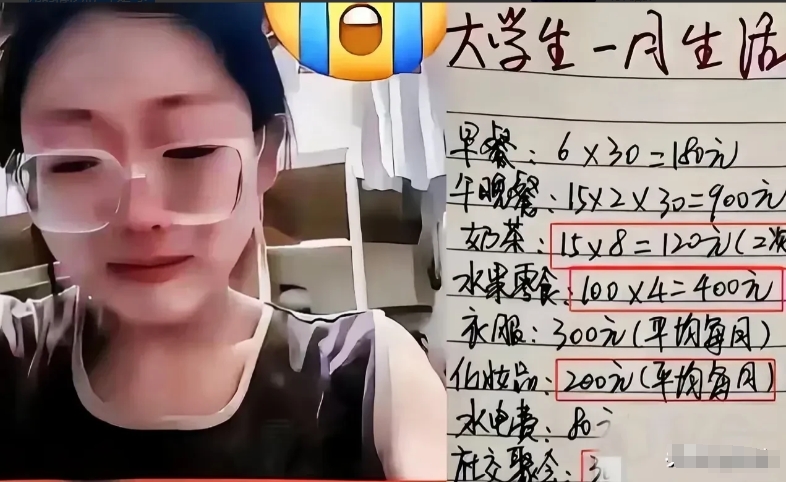 大学生一月生活
早餐：6×30=180元
午晚餐：15×2×30=900元
奶茶：15×8=120元(2次
水果零食：100×4=400元
衣服：300元(平均每月)
化妆品：200元(平均每月)
水电费：80
社交聚会：3